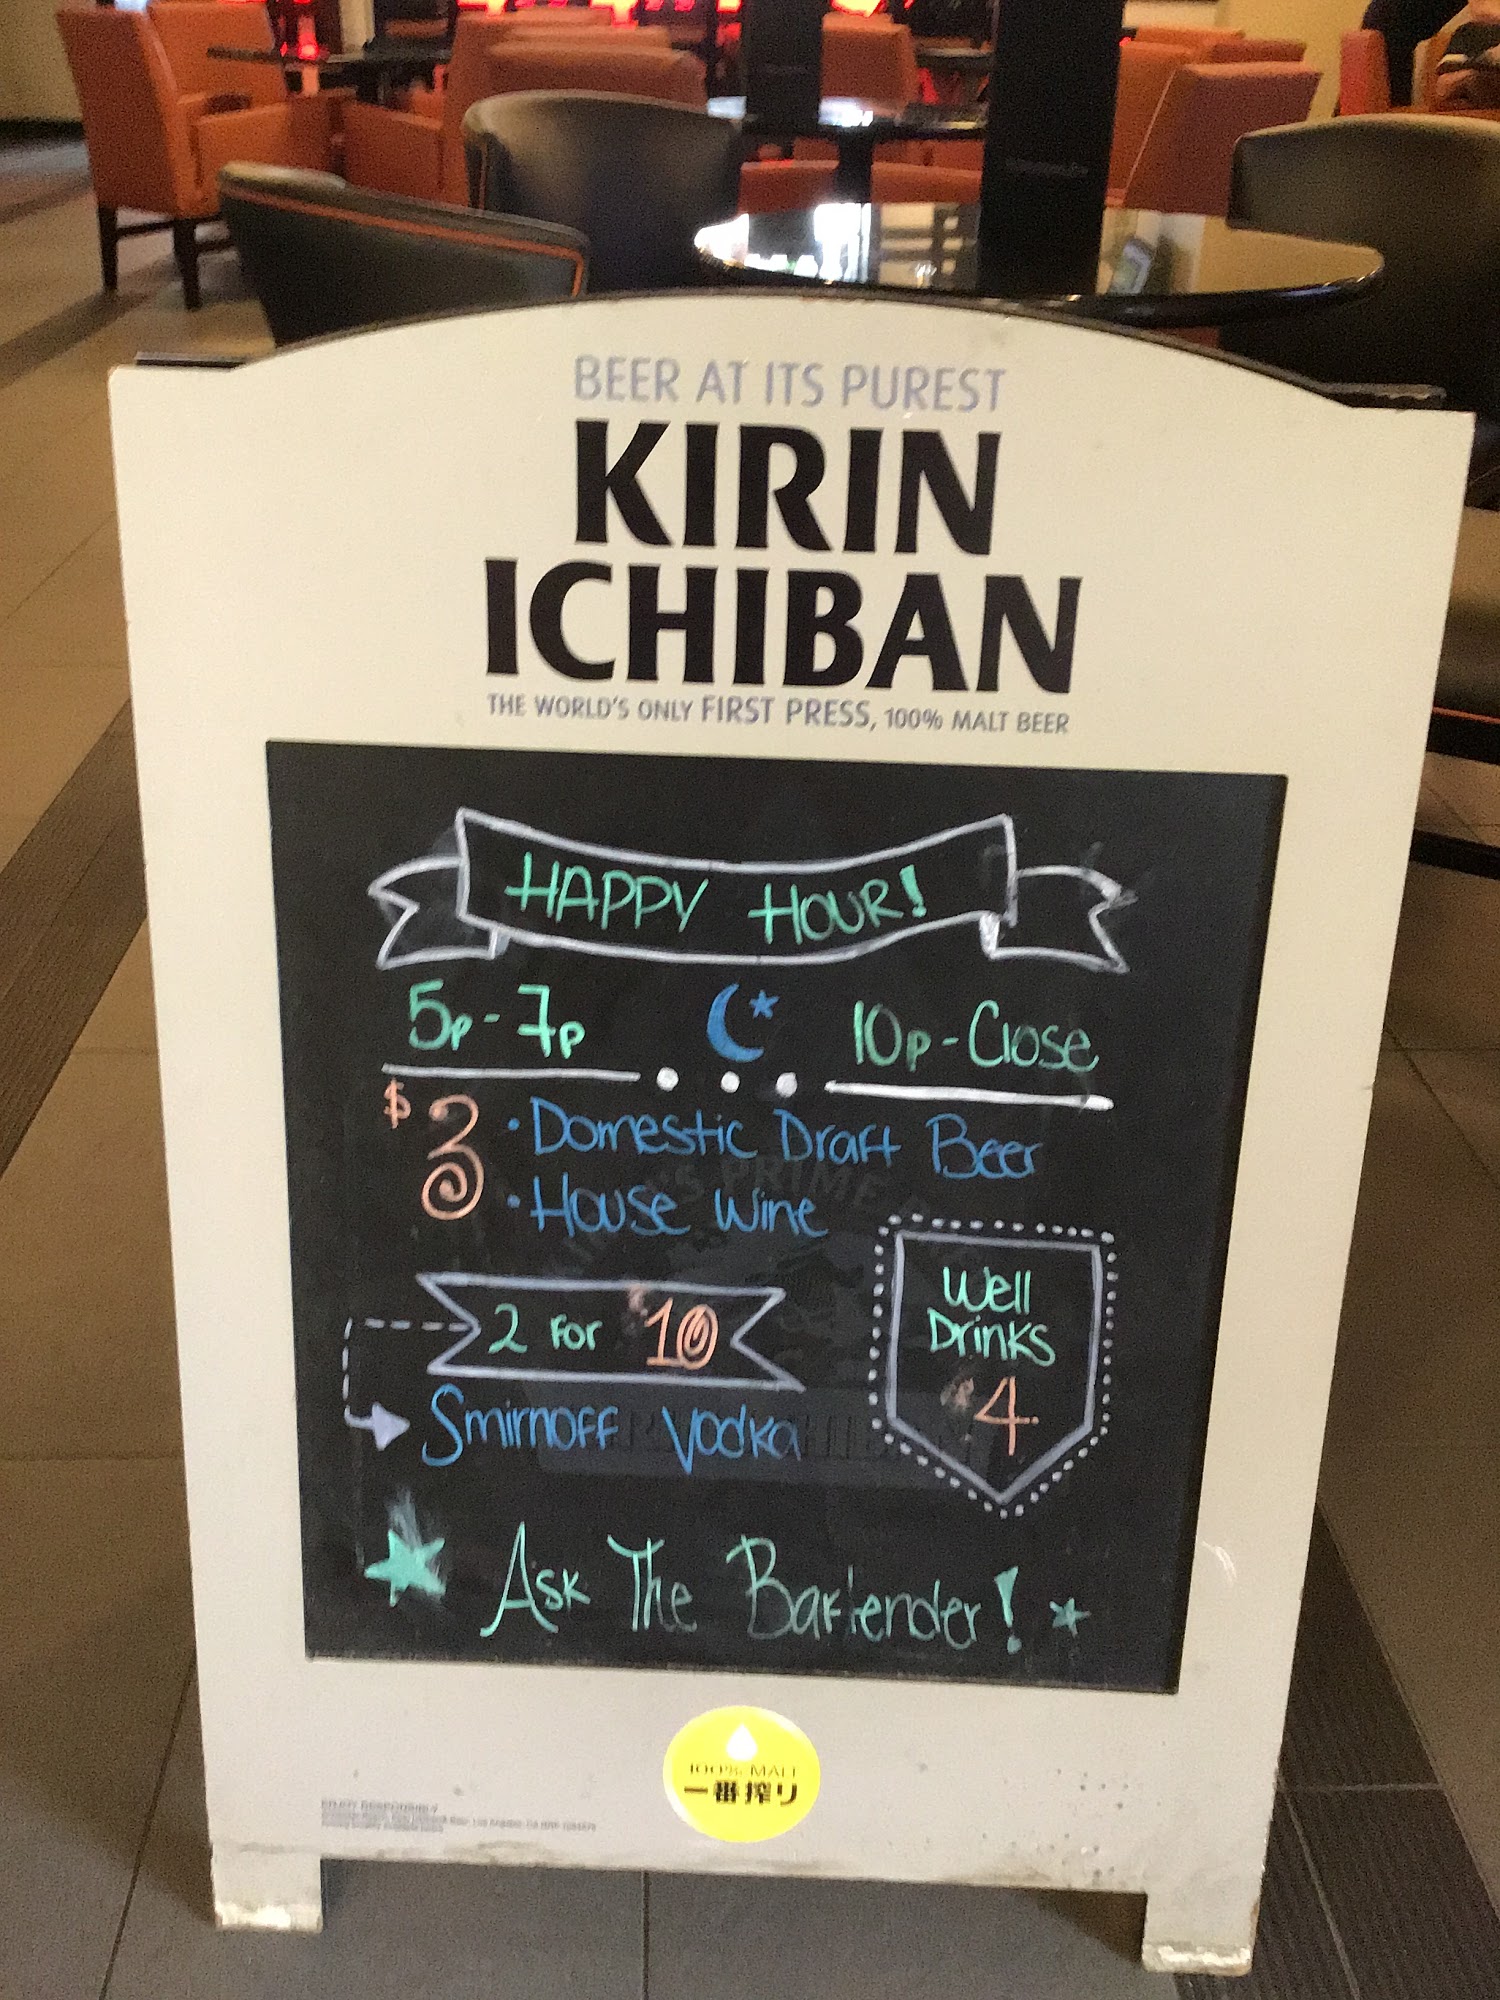 BEER AT ITS PUREST
KIRIN
ICHIBAN
THE WORLD'S ONLY FIRST PRESS, 100% MALT BEER
HAPPY HOUR!
5p-7p 10p-Close
$3 • Domestic Draft Beer
• House Wine
2 For $10
Smirnoff Vodka
Well
Drinks
$4
Ask The Bartender!
100% MALT
一番搾り
ENJOY RESPONSIBLY